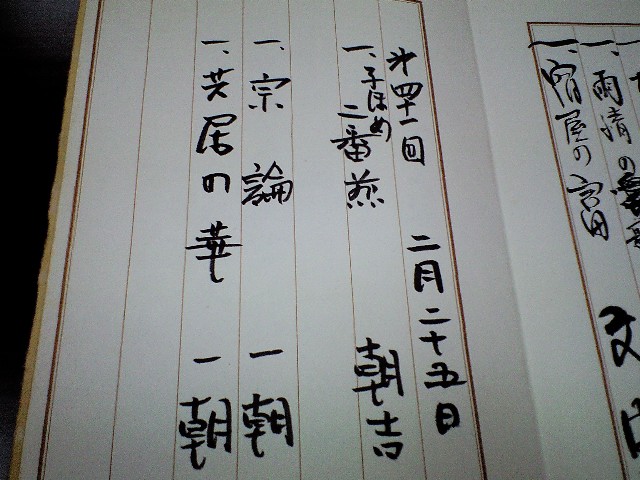 一、宿屋の富
第四十一回 二月二十五日
一、子ほめ 二番煎 朝吉
一、宗論 一朝
一、芝居の華 一朝